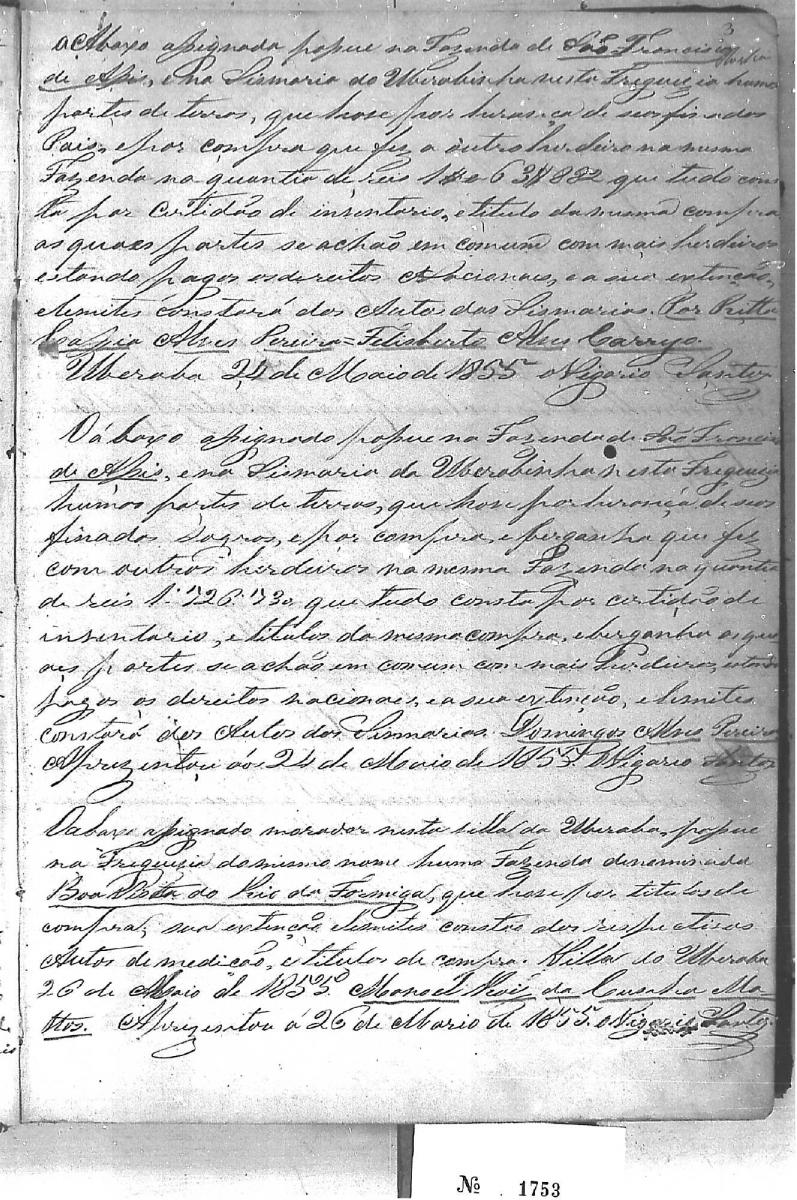 3
a Abaxo assignada possue na Fazenda de São Francisco
de Assis, e na Sismaria do Uberabinha nesta Freguezia huma
partes de terras, que hove por huransa de seos finados
Pais, e por compra que fez a outro herdeiro na mesma
Fazenda na quantia de reis que tudo cons
ta por certidão de insentario, e titulo da mesma compra
as quaes partes se achão em comum com mais herdeiros
estando pagos os direitos Nacionaes, e a sua extinção,
e limites constará dos Autos das Sismarias. Por Pitta
Alves Pereira = Felisberto Alves Carrijo
Uberaba 24 de Maio de 1855 o Vigario Santos
O ábaxo assignado possue na Fazenda de São Francisco
de Assis, e na Sismaria da Uberabinha nesta Freguezia
humas partes de terras, que hove por huronça de seos
finados Sogros, e por compra, e berganha que fez
com outros herdeiros na mesma Fazenda na quantia
de reis 1:726:730 que tudo consta por certidão de
insentario, e titulos da mesma compra, e berganha as qu
aes partes se achão em comum com mais herdeiros, estando
pagos os direitos nacionaes, e a sua extinção, e limites
constará dos Autos das Sismarias. Domingos Alves Pereira
Aprezentou aos 24 de Maio de 1855. O Vigario Santos
O abaxo assignado morador nesta villa da Uberaba, possue
na Freguezia do mesmo nome huma Fazenda denominada
Boa Vista do Rio da Formiga, que hove por titulos de
compra, sua extinção, e limites constão dos respectivos
Autos de medicão, e titulos de compra. Villa do Uberaba
26 de Maio de 1855. Manoel Ruiz da Cunha Ma-
ttos. Aprezentou á 26 de Mario de 1855. o Vigario Santos
Nº 1753